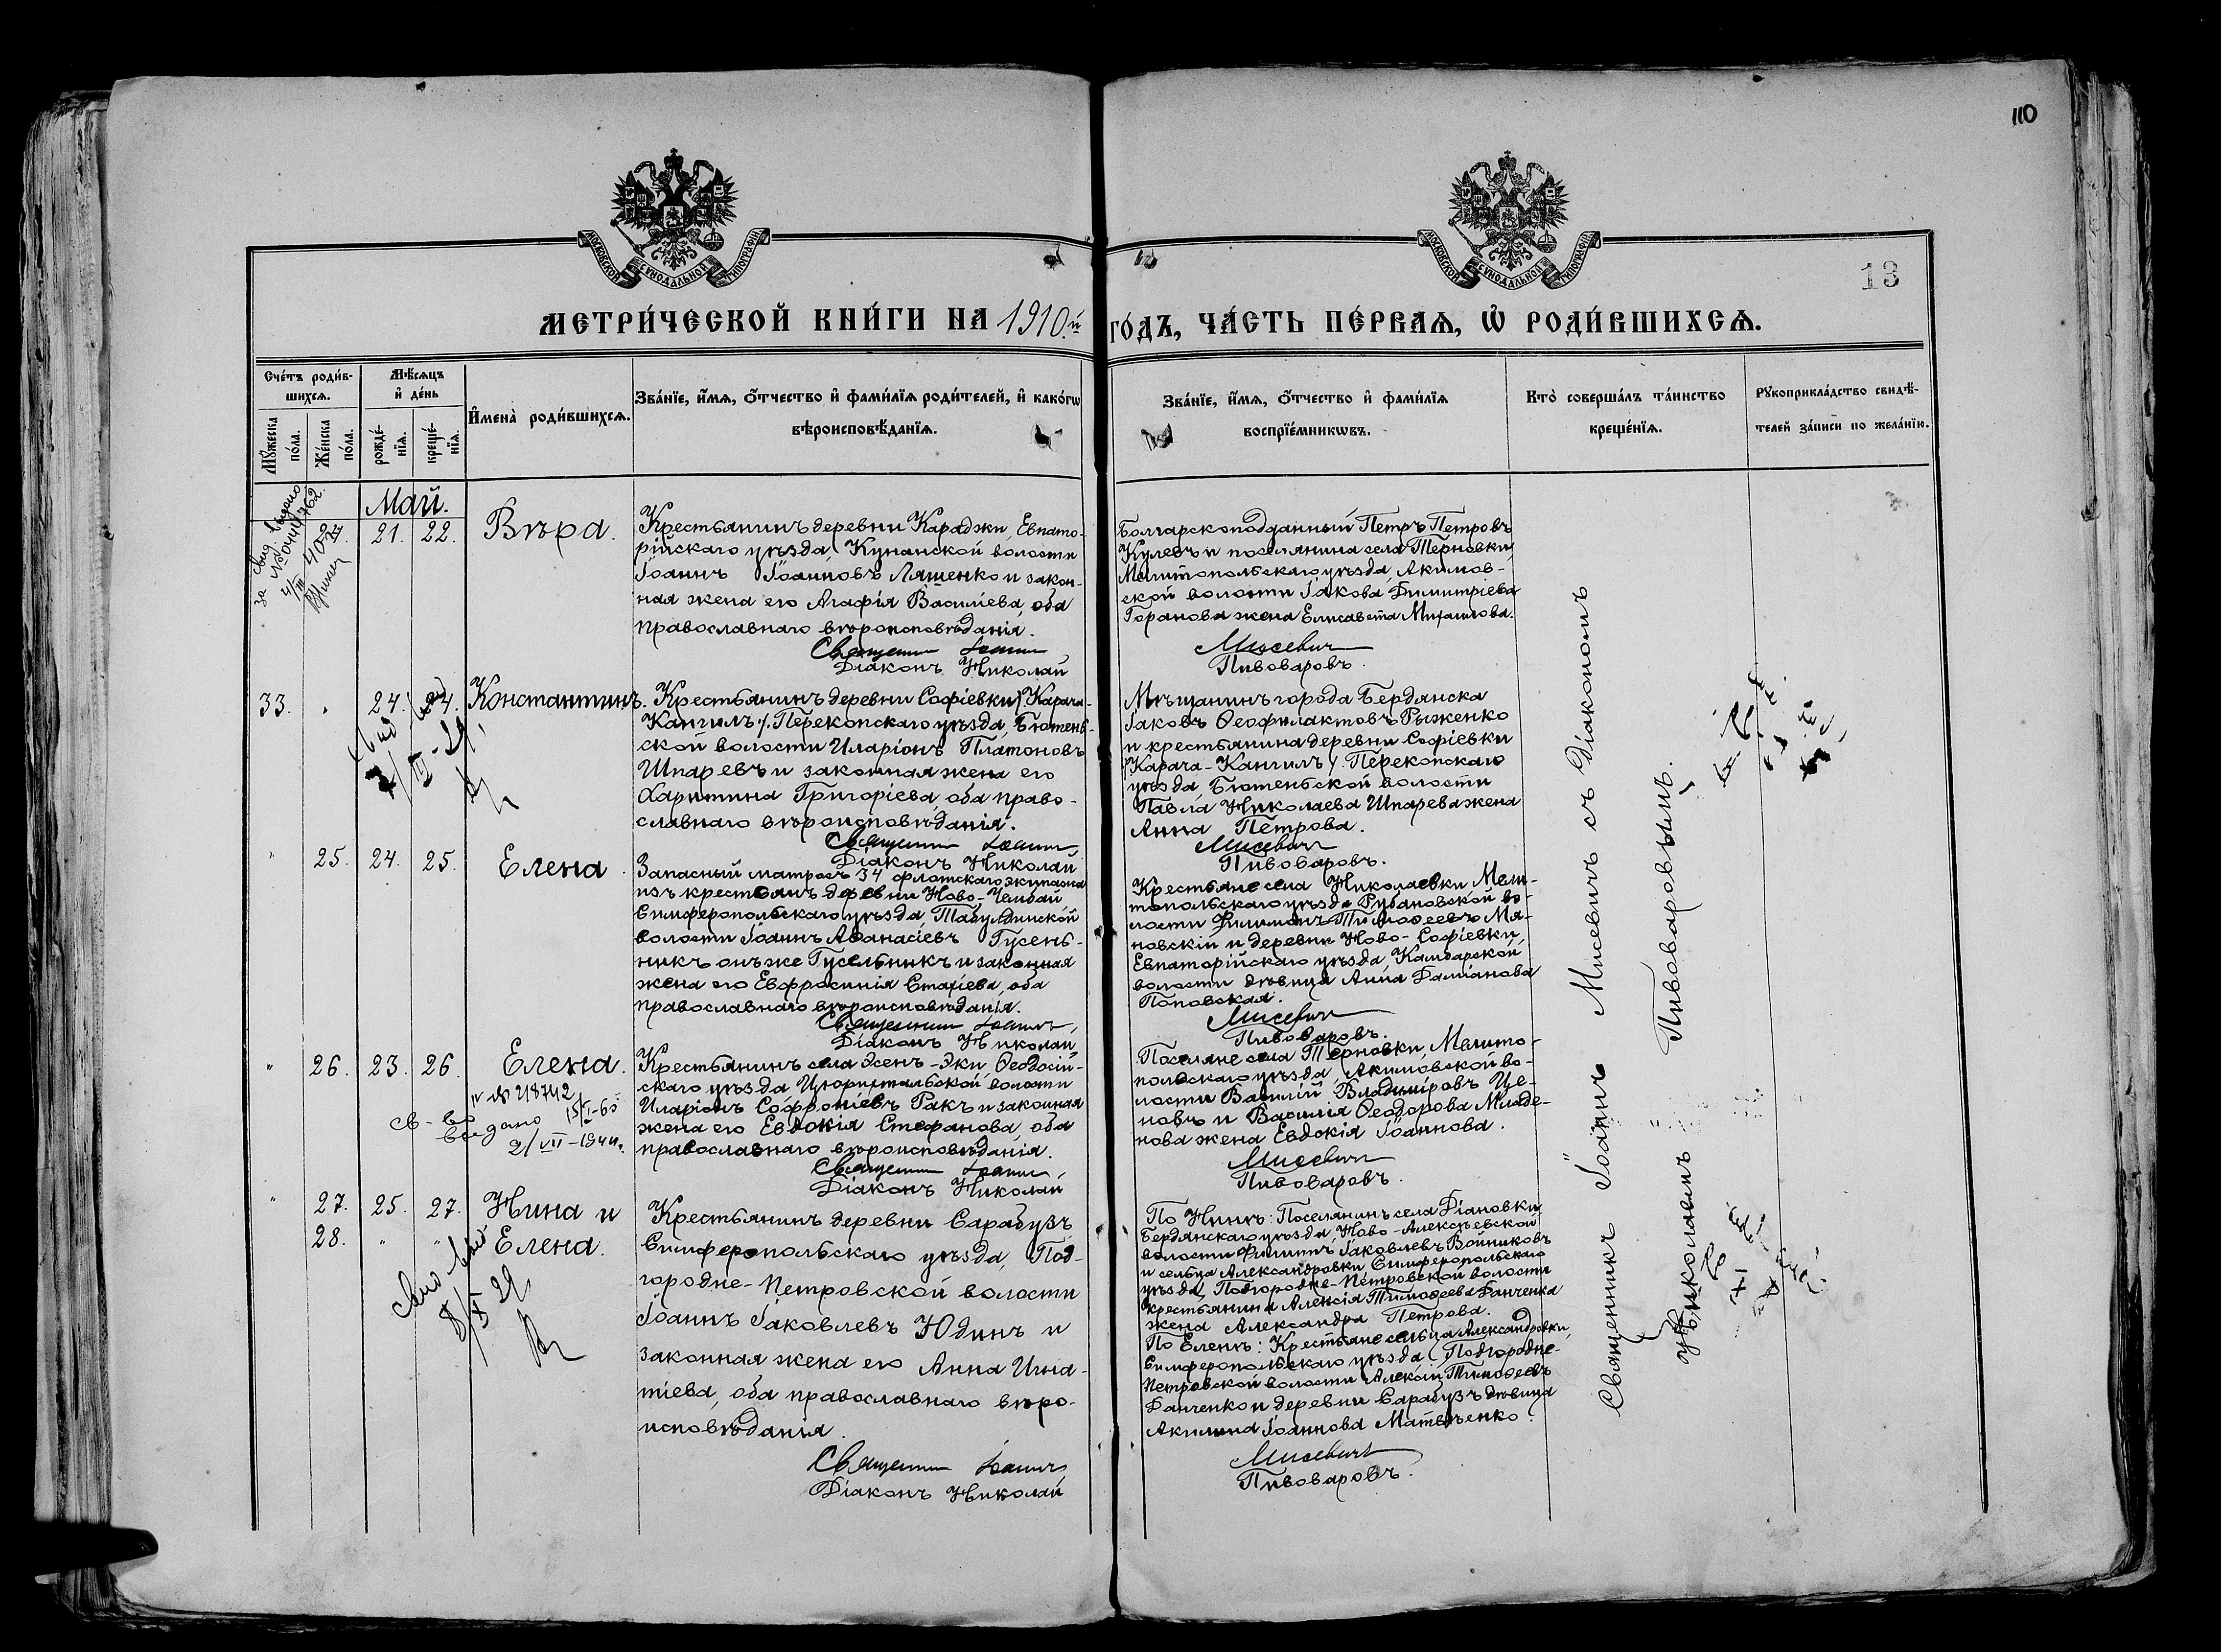 110
МОСКОВСКОЙ СѴНОДАЛЬНОЙ ТИПОГРАФІИ
МОСКОВСКОЙ СѴНОДАЛЬНОЙ ТИПОГРАФІИ
13
МЕТРИ́ЧЕСКОЙ КНИ́ГИ НА 1910.й ГО́ДЪ, ЧА́СТЬ ПЕ́РВАѦ, Ѡ҆ РОДИ́ВШИХСѦ.
Сче́тъ роди́в-
шихсѧ.
Мꙋ́жеска
по́ла.
Же́нска
по́ла.
Мѣ́сѧцъ
и҆ де́нь
рожде́-
нїѧ.
креще́-
нїѧ.
И҆мена̀ роди́вшихсѧ.
Зва́нїе, и҆́мѧ, ѻ҆́тчество и҆ фами́лїѧ роди́телей, и҆ како́гѡ
вѣроисповѣ́данїѧ.
Зва́нїе, и҆́мѧ, ѻ҆́тчество и҆ фами́лїѧ
воспрїе́мникѡвъ.
Кто̀ соверша́лъ та́инство
креще́нїѧ.
Рꙋкоприкла́дство свидѣ́-
телей за́писи по жела́нїю.
Май.
21. 22. Вѣра.
Крестьянинъ деревни Караджи, Евпато-
рійскаго уѣзда, Кунанской волости
Іоаннъ Іоанновъ Ляшенко и закон-
ная жена его Агафія Василіева, оба
православнаго вѣроисповѣданія.
Священникъ Іоаннъ
Діаконъ Николай
Болгарскоподданный Петръ Петровъ
Кулевъ и поселянина села Терновки,
Мелитопольскаго уѣзда, Акимов-
ской волости Іакова Димитріева
Горанова жена Елисавета Михаилова.
Мисевичъ
Пивоваровъ.
33. " 24. 24. Константинъ.
Крестьянинъ деревни Софіевки /Карача-
Кангилъ/. Перекопскаго уѣзда, Бютень-
ской волости Иларіонъ Платоновъ
Шпаревъ и законная жена его
Харитина Григоріева, оба право-
славнаго вѣроисповѣданія.
Священникъ Іоаннъ,
Діаконъ Николай
Мѣщанинъ города Бердянска
Іаковъ Ѳеофилактовъ Рыженко
и крестьянина деревни Софіевки
/Карача-Кангилъ/. Перекопскаго
уѣзда, Бютеньской волости
Павла Николаева Шпарева жена
Анна Петрова.
Мисевичъ
Пивоваровъ.
" 25. 24. 25. Елена.
Запасный матросъ 34 флотскаго экипажа
изъ крестьянъ деревни Ново-Челбай
Симферопольскаго уѣзда, Табулдинской
волости Іоаннъ Аѳанасіевъ Гусень-
никъ онъже Гусельникъ и законная
жена его Евфросинія Стахіева, оба
православнаго вѣроисповѣданія.
Священникъ Іоаннъ,
Діаконъ Николай
Крестьяне села Николаевки Мели-
топольскаго уѣзда Рубановской во-
лости Филимонъ Тимоѳеевъ Ма-
новскій и деревни Ново-Софіевки,
Евпаторійскаго уѣзда, Камбарской
волости дѣвица Анна Даміанова
Поповская.
Мисевичъ
Пивоваровъ.
" 26. 23. 26. Елена.
№ 218742
св-во
выдано
2/VII-1944.
Крестьянинъ села Эсенъ-Эки, Ѳеодосій-
скаго уѣзда Цюрихтальской волости
Иларіонъ Софроніевъ Ракъ и законная
жена его Евдокія Стефанова, оба
православнаго вѣроисповѣданія.
Священникъ Іоаннъ,
Діаконъ Николай
Поселяне села Терновки, Мелито-
польскаго уѣзда, Акимовской во-
лости Василій Владиміровъ Це-
новъ и Василія Ѳеодорова Младе-
нова жена Евдокія Іоаннова.
Мисевичъ
Пивоваровъ.
" 27. 25. 27. Нина и
28. " " Елена.
Крестьянинъ деревни Сарабузъ
Симферопольскаго уѣзда, Под-
городне-Петровской волости
Іоаннъ Іаковлевъ Юдинъ и
законная жена его Анна Игна-
тіева, оба православнаго вѣро-
исповѣданія.
Священникъ Іоаннъ
Діаконъ Николай
По Нинѣ: Поселянинъ села Діановки
Бердянскаго уѣзда, Ново-Алексѣевской
волости Филиппъ Іаковлевъ Войниковъ
и сельца Александровки Симферопольскаго
уѣзда, Подгородне-Петровской волости
крестьянина Алексія Тимоѳеева Данченка
жена Александра Петрова.
По Еленѣ: Крестьяне сельца Александровки,
Симферопольскаго уѣзда, Подгородне-
Петровской волости Алексій Тимоѳеевъ
Данченко и деревни Сарабузъ дѣвица
Акилина Іоаннова Матвѣенко.
Мисевичъ
Пивоваровъ.
Священникъ Іоаннъ Мисевичъ съ Діакономъ
Николаемъ Пивоваровымъ.